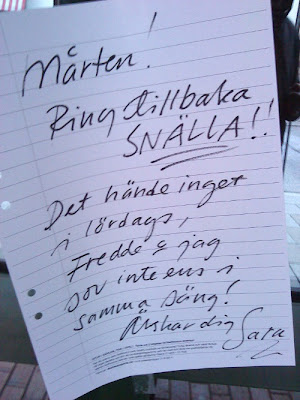 Mårten!
Ring tillbaka
SNÄLLA!!
Det hände inget
i lördags,
Fredde & jag
sov inte ens i
samma säng!
Älskar dig
Sara